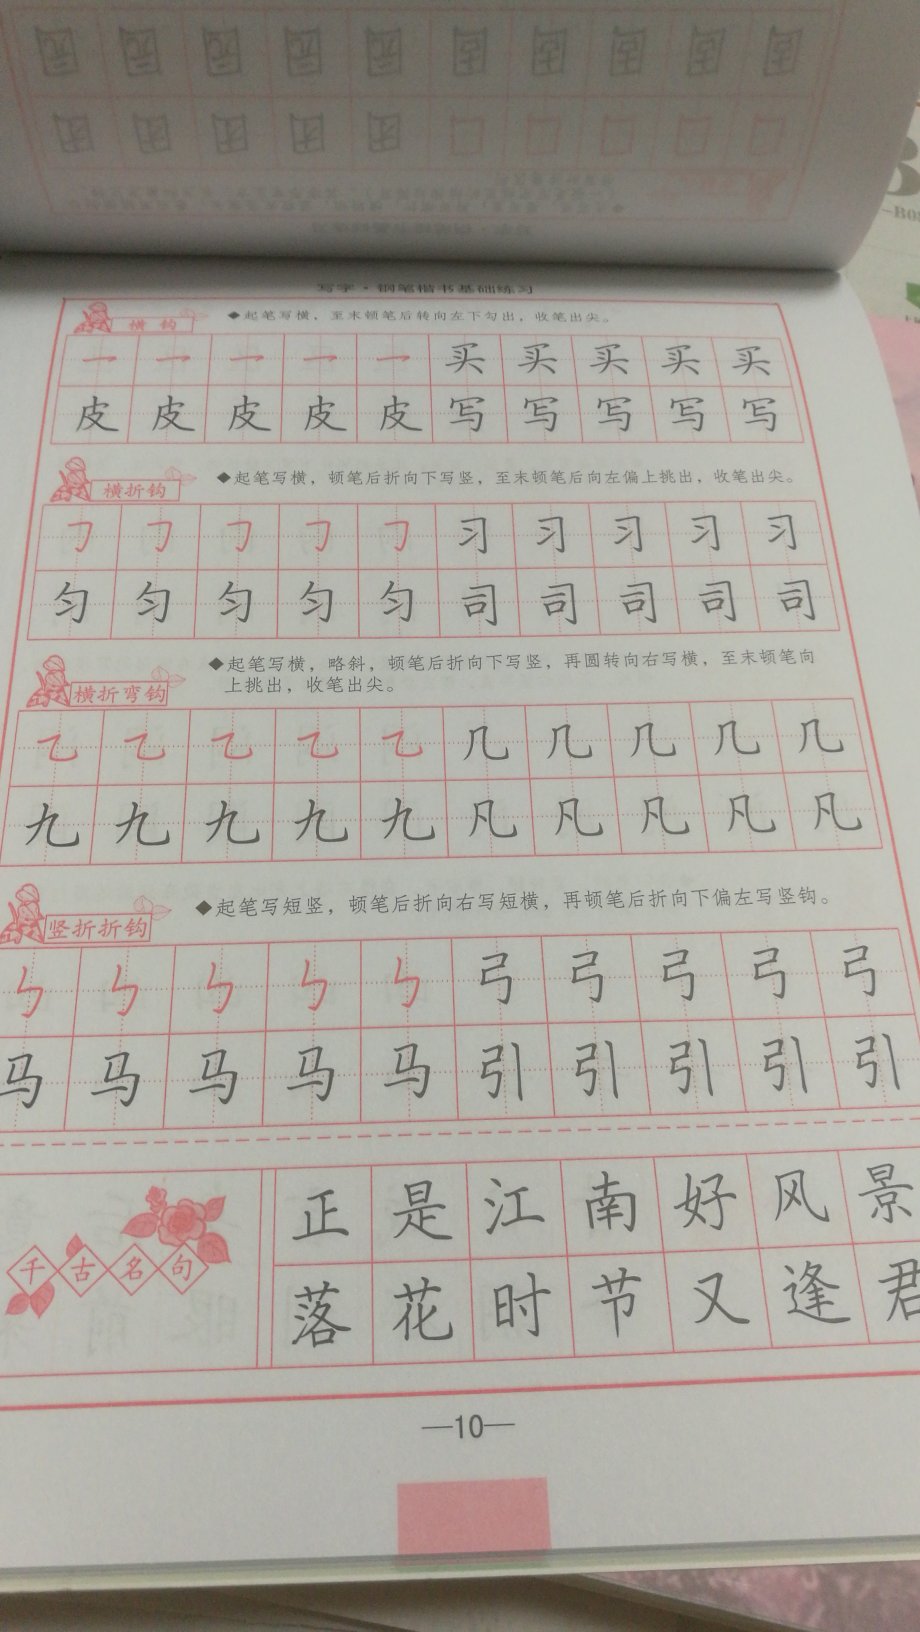 写字·钢笔楷书基础练习
横钩 ◆起笔写横，至末顿笔后转向左下勾出，收笔出尖。
买 买 买 买 买
皮 皮 皮 皮 皮 写 写 写 写 写
横折钩 ◆起笔写横，顿笔后折向下写竖，至末顿笔后向左偏上挑出，收笔出尖。
𠃌 𠃌 𠃌 𠃌 𠃌 习 习 习 习 习
匀 匀 匀 匀 匀 司 司 司 司 司
横折弯钩 ◆起笔写横，略斜，顿笔后折向下写竖，再圆转向右写横，至末顿笔向
上挑出，收笔出尖。
㇈ ㇈ ㇈ ㇈ ㇈ 几 几 几 几 几
九 九 九 九 九 凡 凡 凡 凡 凡
竖折折钩 ◆起笔写短竖，顿笔后折向右写短横，再顿笔后折向下偏左写竖钩。
㇉ ㇉ ㇉ ㇉ ㇉ 弓 弓 弓 弓 弓
马 马 马 马 马 引 引 引 引 引
千古名句
正是江南好风景
落花时节又逢君
—10—